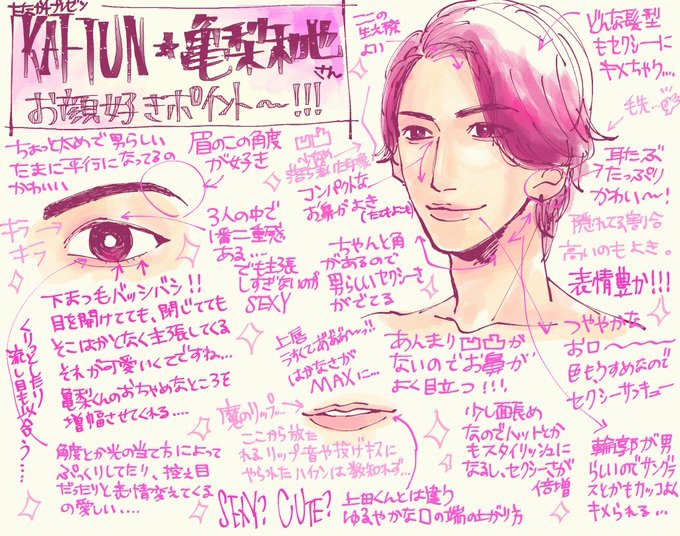 KAT-TUN★亀梨和也さん
お顔好きポイント〜!!!
ちょっと太めで男らしい
たまに平行になってるの
かわいい
眉のこの角度
が好き
キラ
キラ
3人の中で
1番二重感
ある…
でも主張
しすぎないのが
SEXY
下まつ毛バッシバシ!!
目を開けてても、閉じてても
そこはかとなく主張してくる
それが可愛いくてですね…
亀梨くんのおちゃめなところを
増幅させてくれる…
くりっとしたり
流し目も似合う……
角度とか光の当て方によって
ぷっくりしたり、控え目
だったりと表情変えてくる
の愛しい….
この
生え際
よい
どんな髪型
もセクシーに
キメちゃう…
毛先…
凹凸
少なめ
コンパクトな
お鼻がよき
耳たぶ
たっぷり
かわい〜!
隠れてる割合
高いのもよき。
表情豊か!!!
ちゃんと角
があるので
男らしいセクシーさ
がでてる
上唇
うすくてああぁ〜!!
はかなさが
MAXに…
あんまり凹凸が
ないのでお鼻が
よく目立つ!!!
つややかな
お口
色もうすめなので
セクシーサンキュー
魔のリップ…
ここから放た
れるリップ音や投げキスに
やられたハイフンは数知れず…
SEXY? CUTE?
上田くんとは違う
ゆるやかな口の端の上がり方
少し面長め
なのでハットとか
もスタイリッシュに
なるし、セクシーさが
倍増
輪郭が男
らしいのでサングラ
スとかもカッコよく
キメられる…